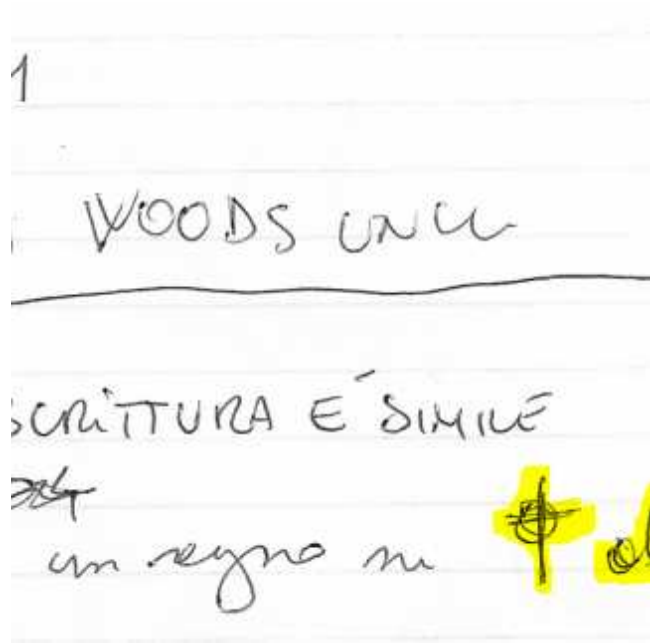 1
WOODS
SCRITTURA E' SIMILE
un segno su